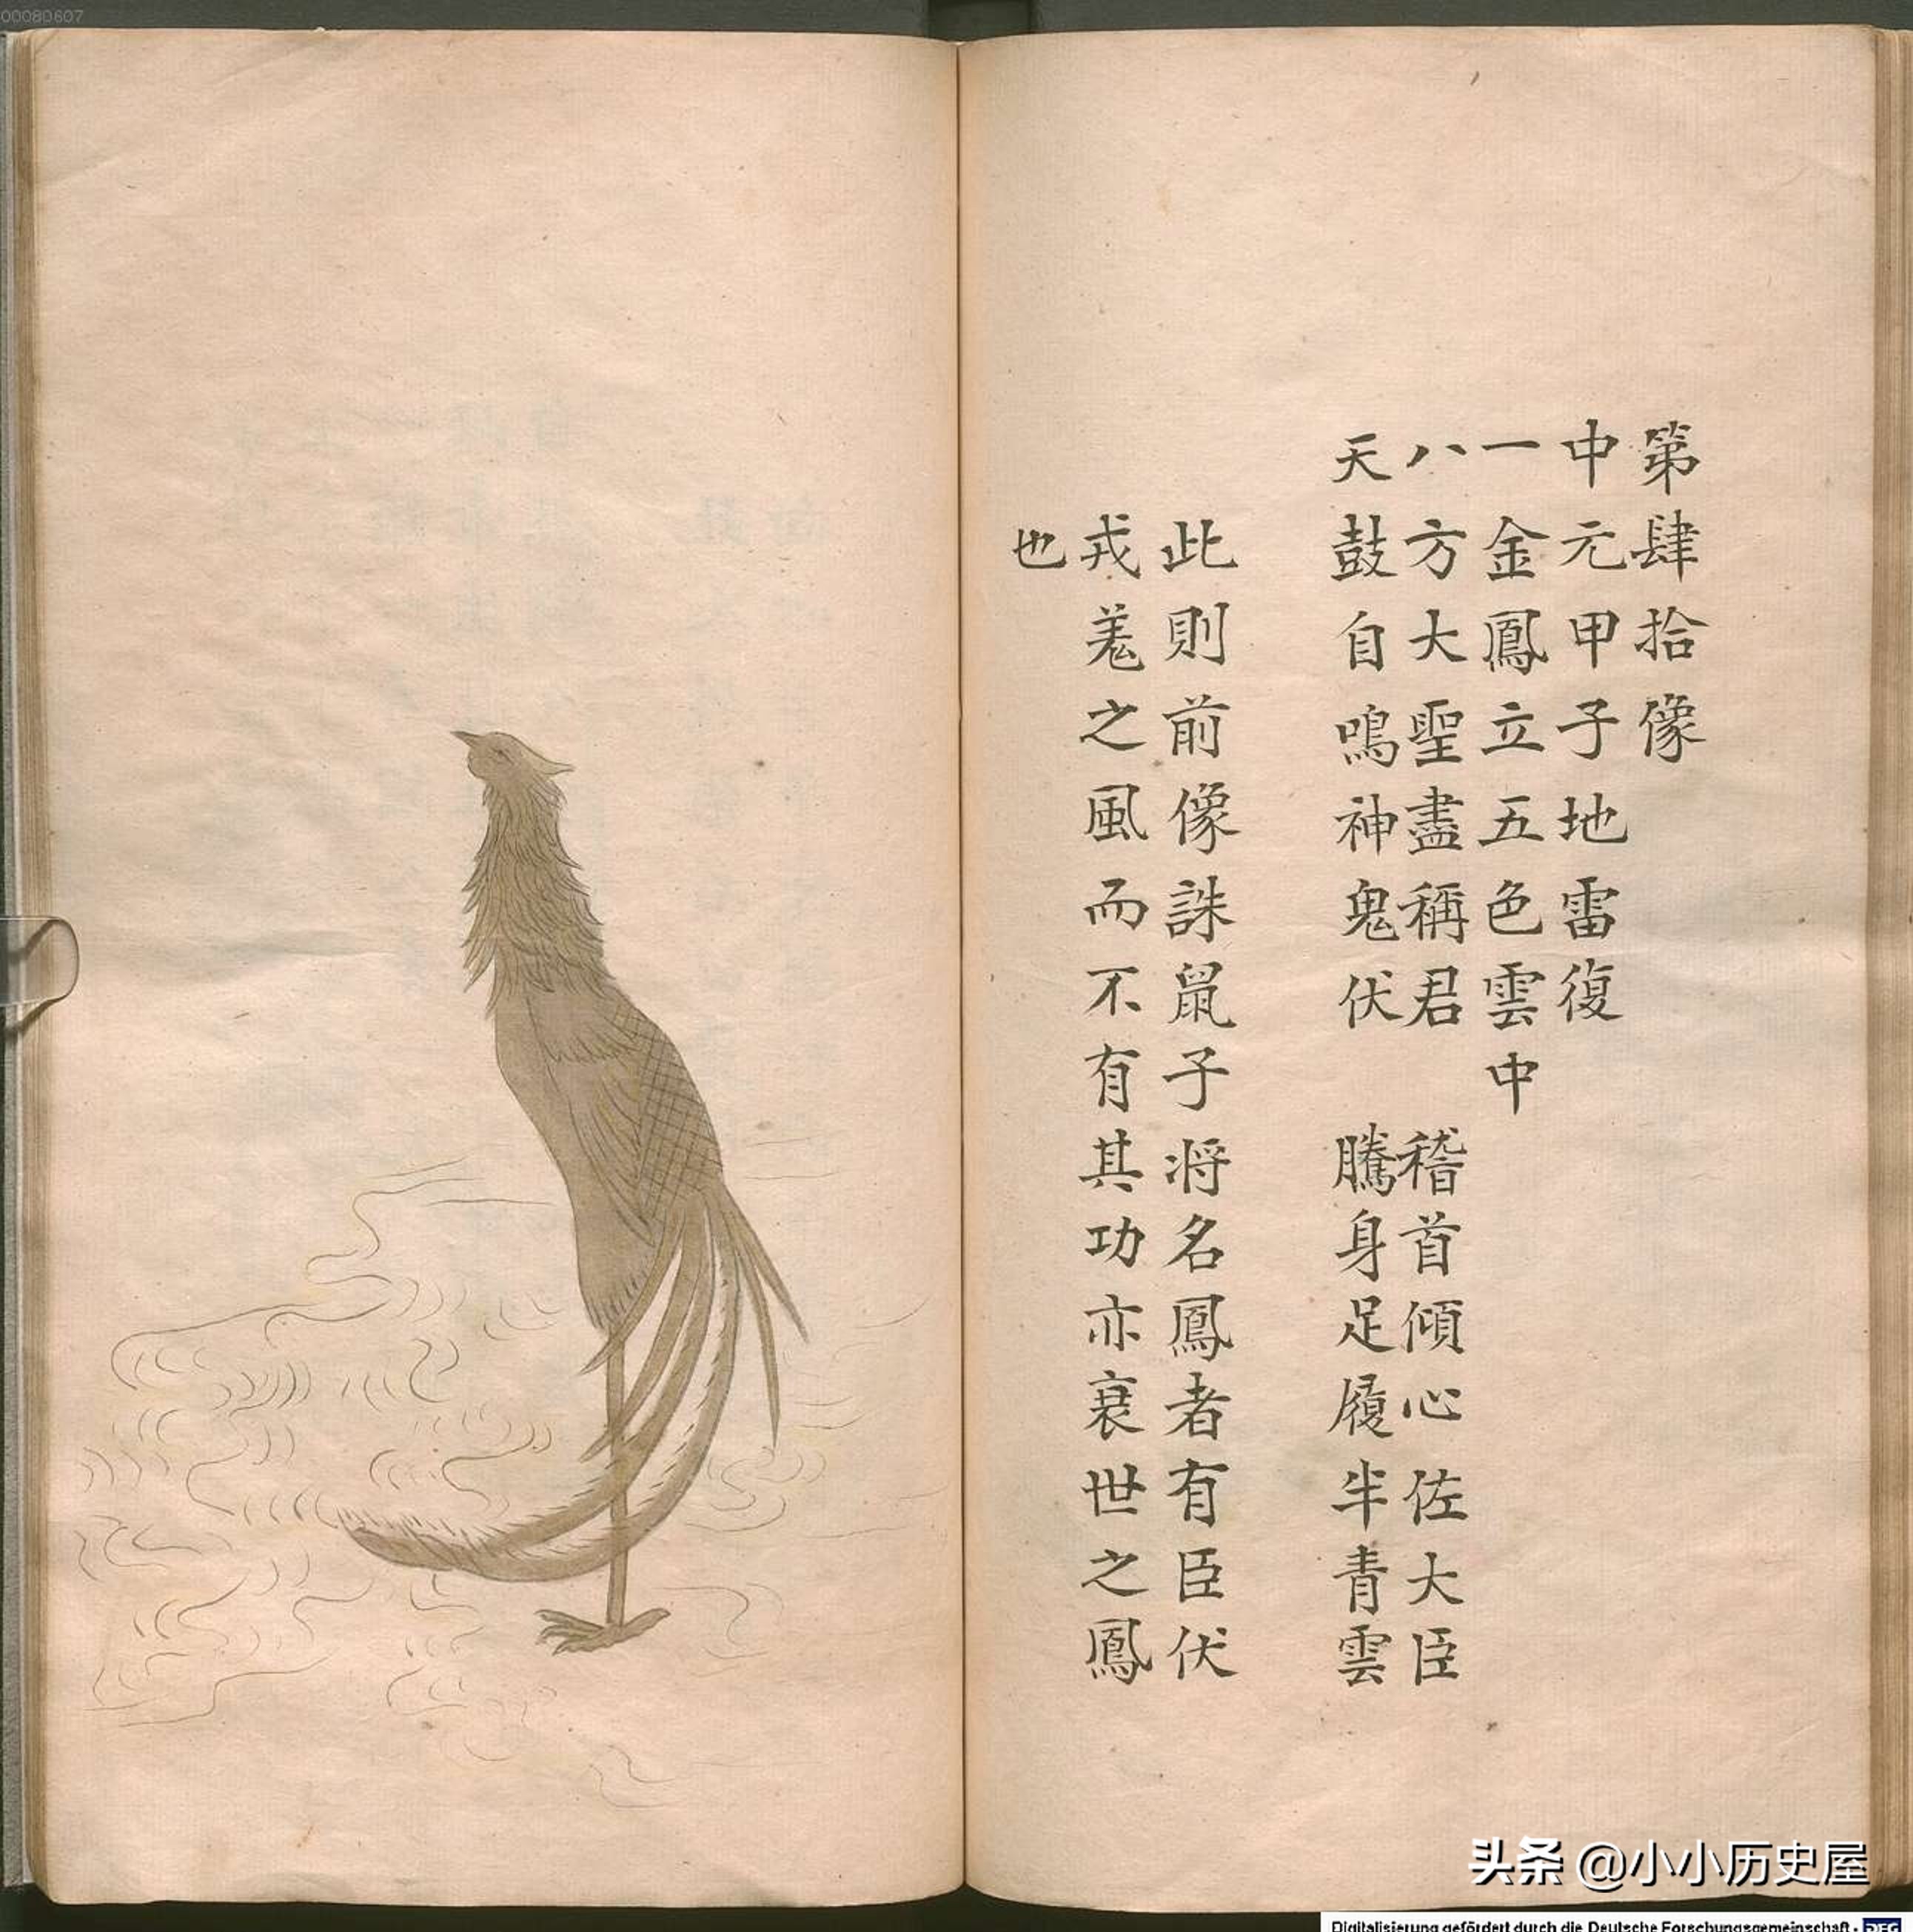 00080607
第肆拾像
中元甲子地雷復
一金鳳立五色雲中
八方大聖盡稱君 稽首傾心佐大臣
天鼓自鳴神鬼伏 騰身足履半青雲
此則前像誅鼠子将名鳳者有臣伏
戎羗之風而不有其功亦衰世之鳳
也
头条 @小小历史屋
Digitalisierung gefördert durch die Deutsche Forschungsgemeinschaft - DFG